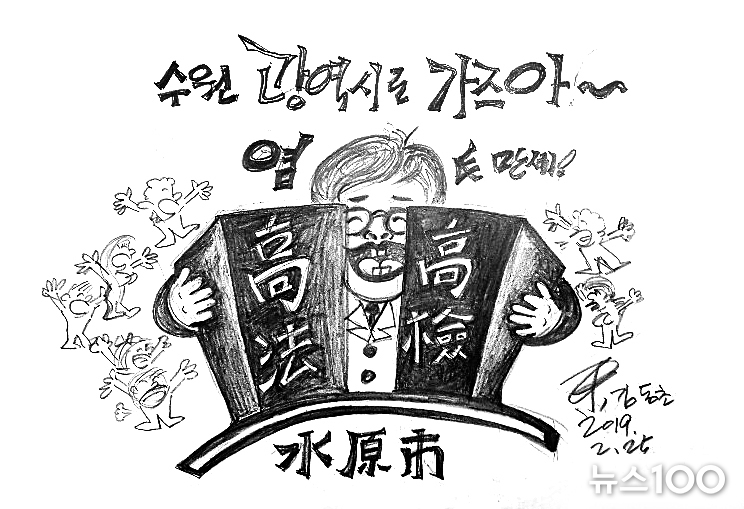 수원 광역시로 가즈아~
염 氏 만세!
高法
高檢
水原市
김동초
2019.
2. 25
뉴스100